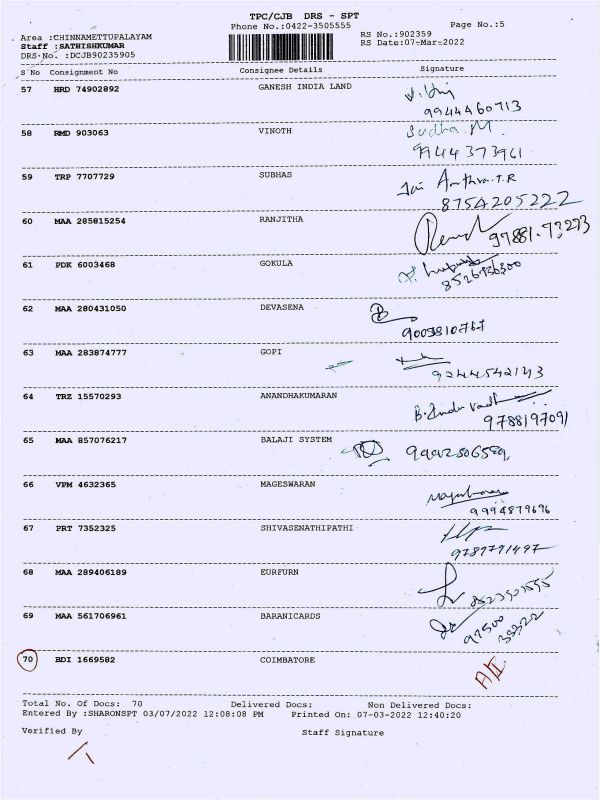 TPC/CJB DRS - SPT
Phone No.:0422-3505555
Page No.:5
Area :CHINNAMETTUPALAYAM
RS No.:902359
Staff :SATHISHKUMAR
RS Date:07-Mar-2022
DRS-No. :DCJB90235905
S No Consignment No Consignee Details Signature
57 HRD 74902892 GANESH INDIA LAND
9944460713
58 RMD 903063 VINOTH Sudha.M.
9944373961
59 TRP 7707729 SUBHAS
8754205222
60 MAA 285815254 RANJITHA
97881.73293
61 PDK 6003468 GOKULA
62 MAA 280431050 DEVASENA
63 MAA 283874777 GOPI
64 TRZ 15570293 ANANDHAKUMARAN
9788197091
65 MAA 857076217 BALAJI SYSTEM
66 VPM 4632365 MAGESWARAN
9994879696
67 PRT 7352325 SHIVASENATHIPATHI
68 MAA 289406189 EURFURN
69 MAA 561706961 BARANICARDS
70 BDI 1669582 COIMBATORE
Total No. Of Docs: 70 Delivered Docs: Non Delivered Docs:
Entered By :SHARONSPT 03/07/2022 12:08:08 PM Printed On: 07-03-2022 12:40:20
Verified By Staff Signature